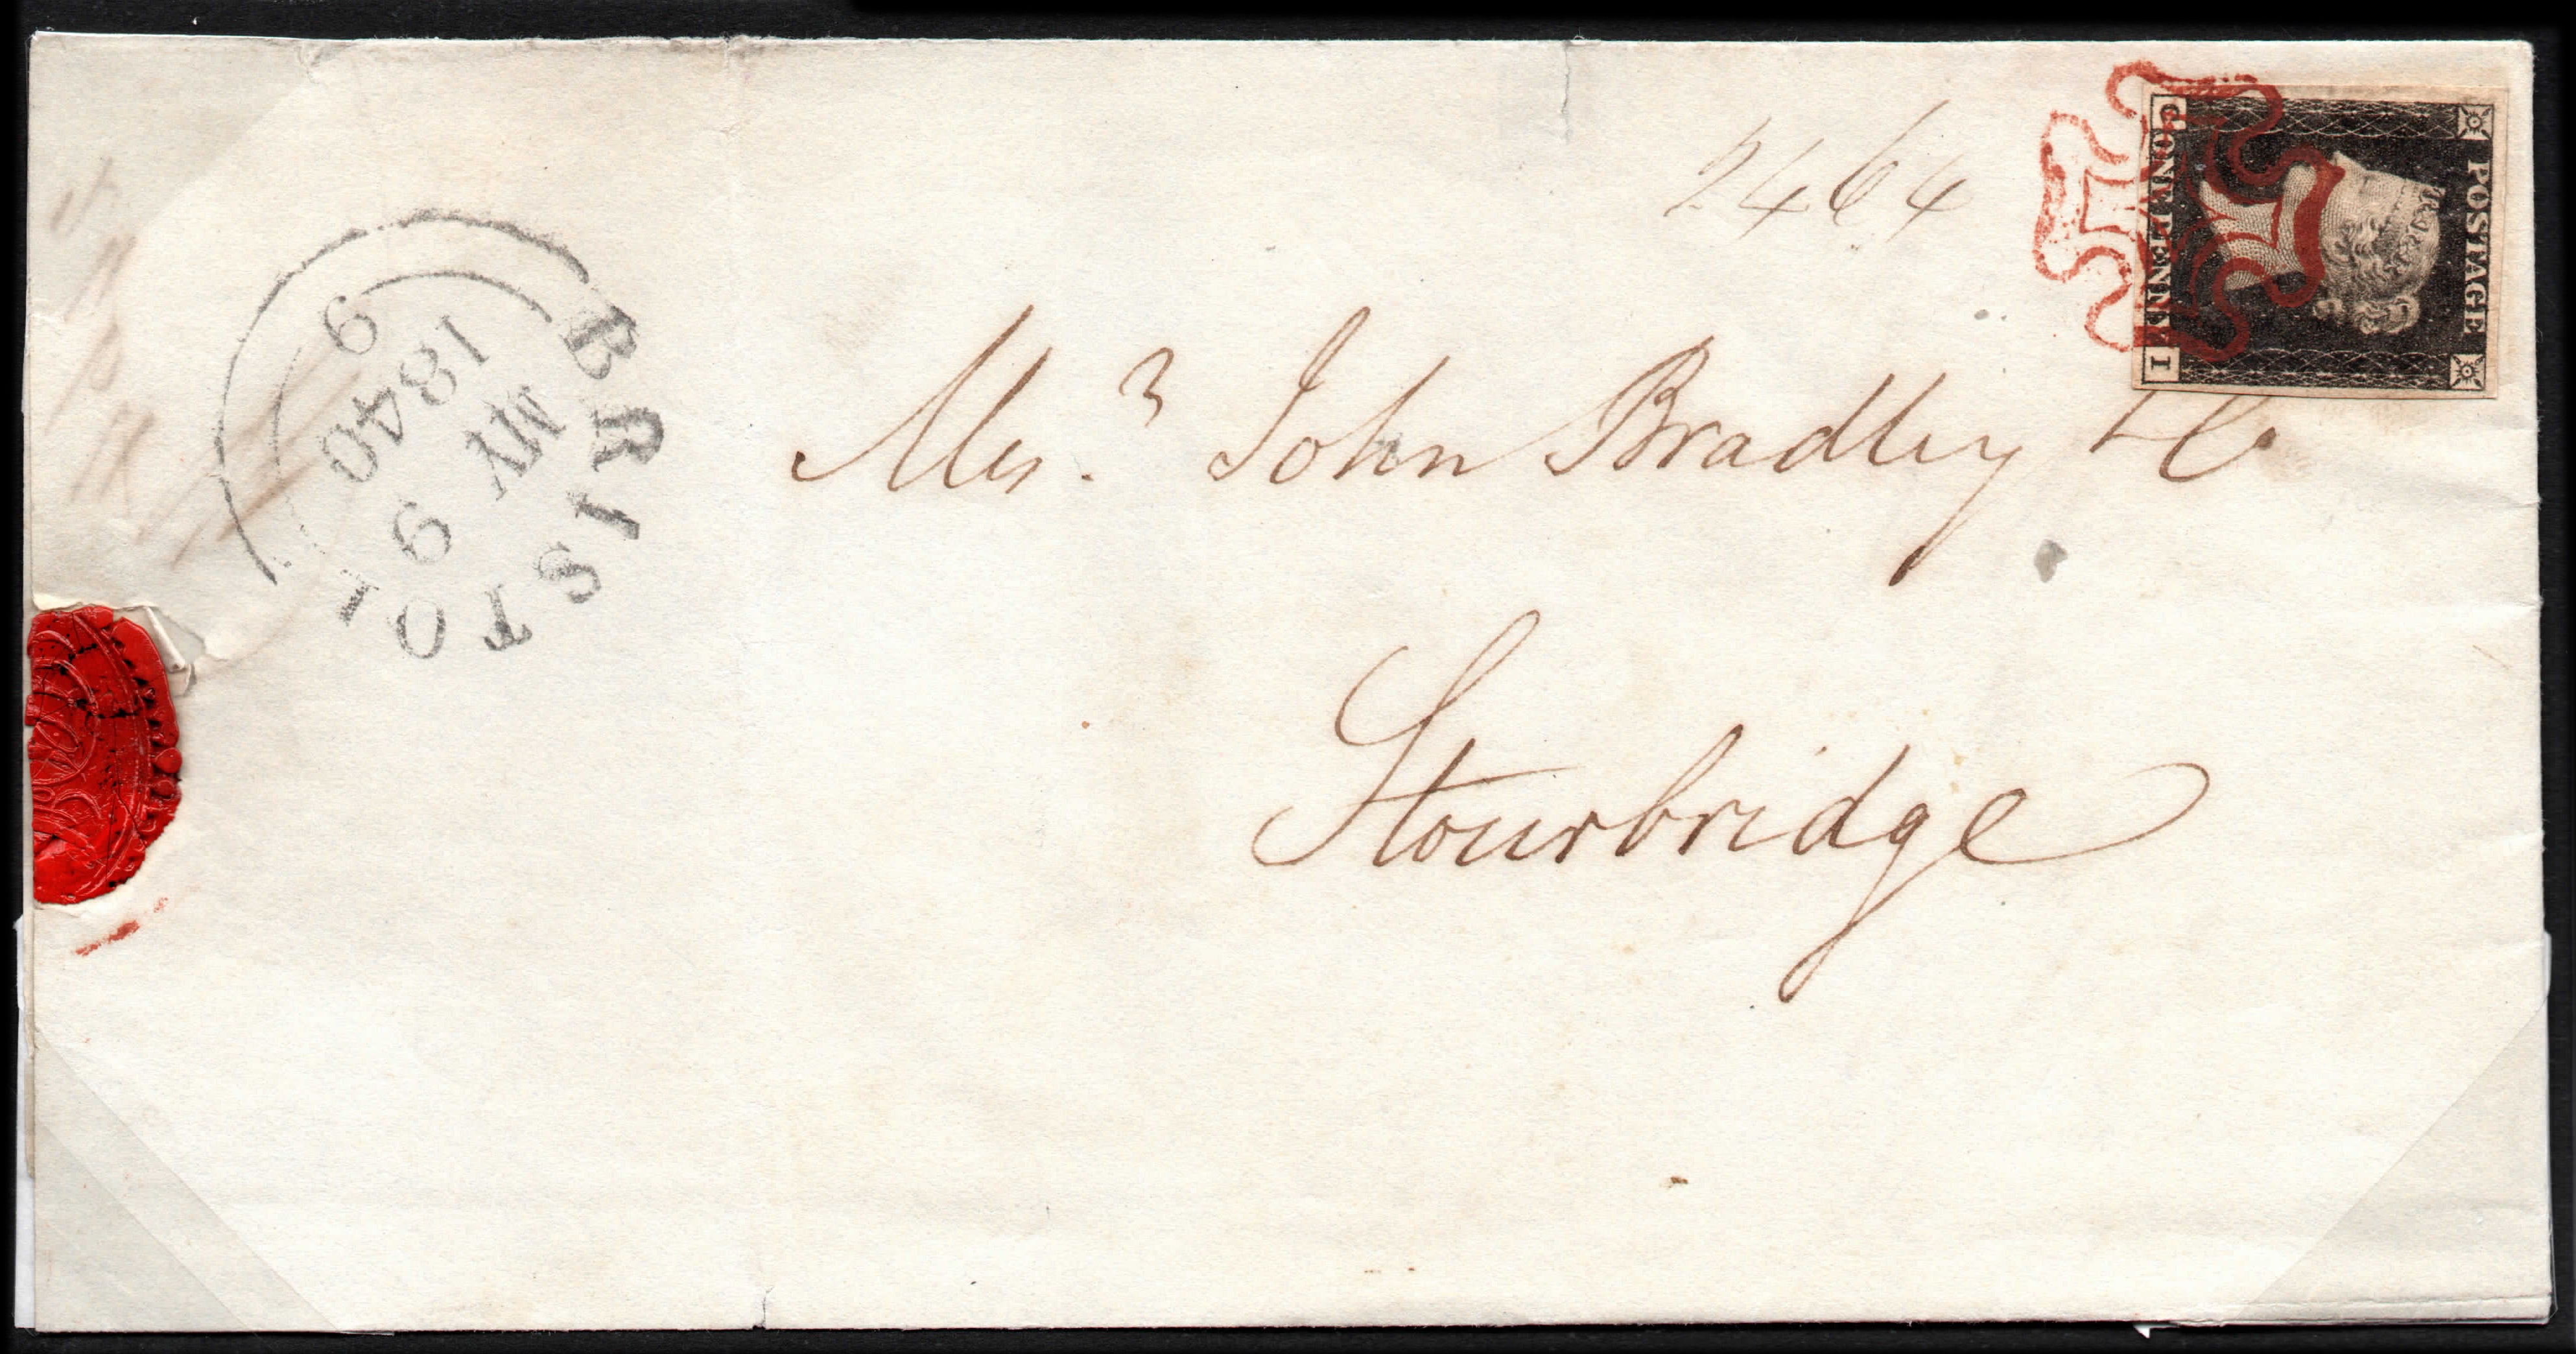 POSTAGE
ONE PENNY
I
2464
BRISTOL
MY 9
1840
Mes.rs John Bradley & Co.
Stourbridge